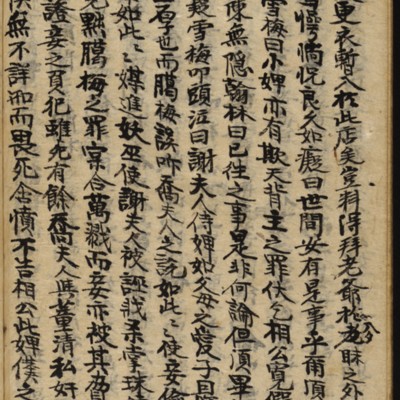 更衣暫入於此店矣豈料得拜老爺於昧之外
慌惝怳良久如癡曰世間安有是事乎爾須
雪梅曰小婢亦有欺天背主之罪伏乞相公寬假
陳無隱翰林曰已往之事是非何論但須畢
雪梅叩頭泣曰謝夫人待婢如父母之愛子
子也而臘梅誤听喬夫人之説如此〻使妾偷
如此〻媒進妖巫使謝夫人被誣戕杀掌珠
黙臘梅之罪宲合萬戮而妾亦被其脅
證妾之負犯雖死有餘喬夫人與董清私奸
僕無不詳知而畏死含憤不告相公此婢僕之